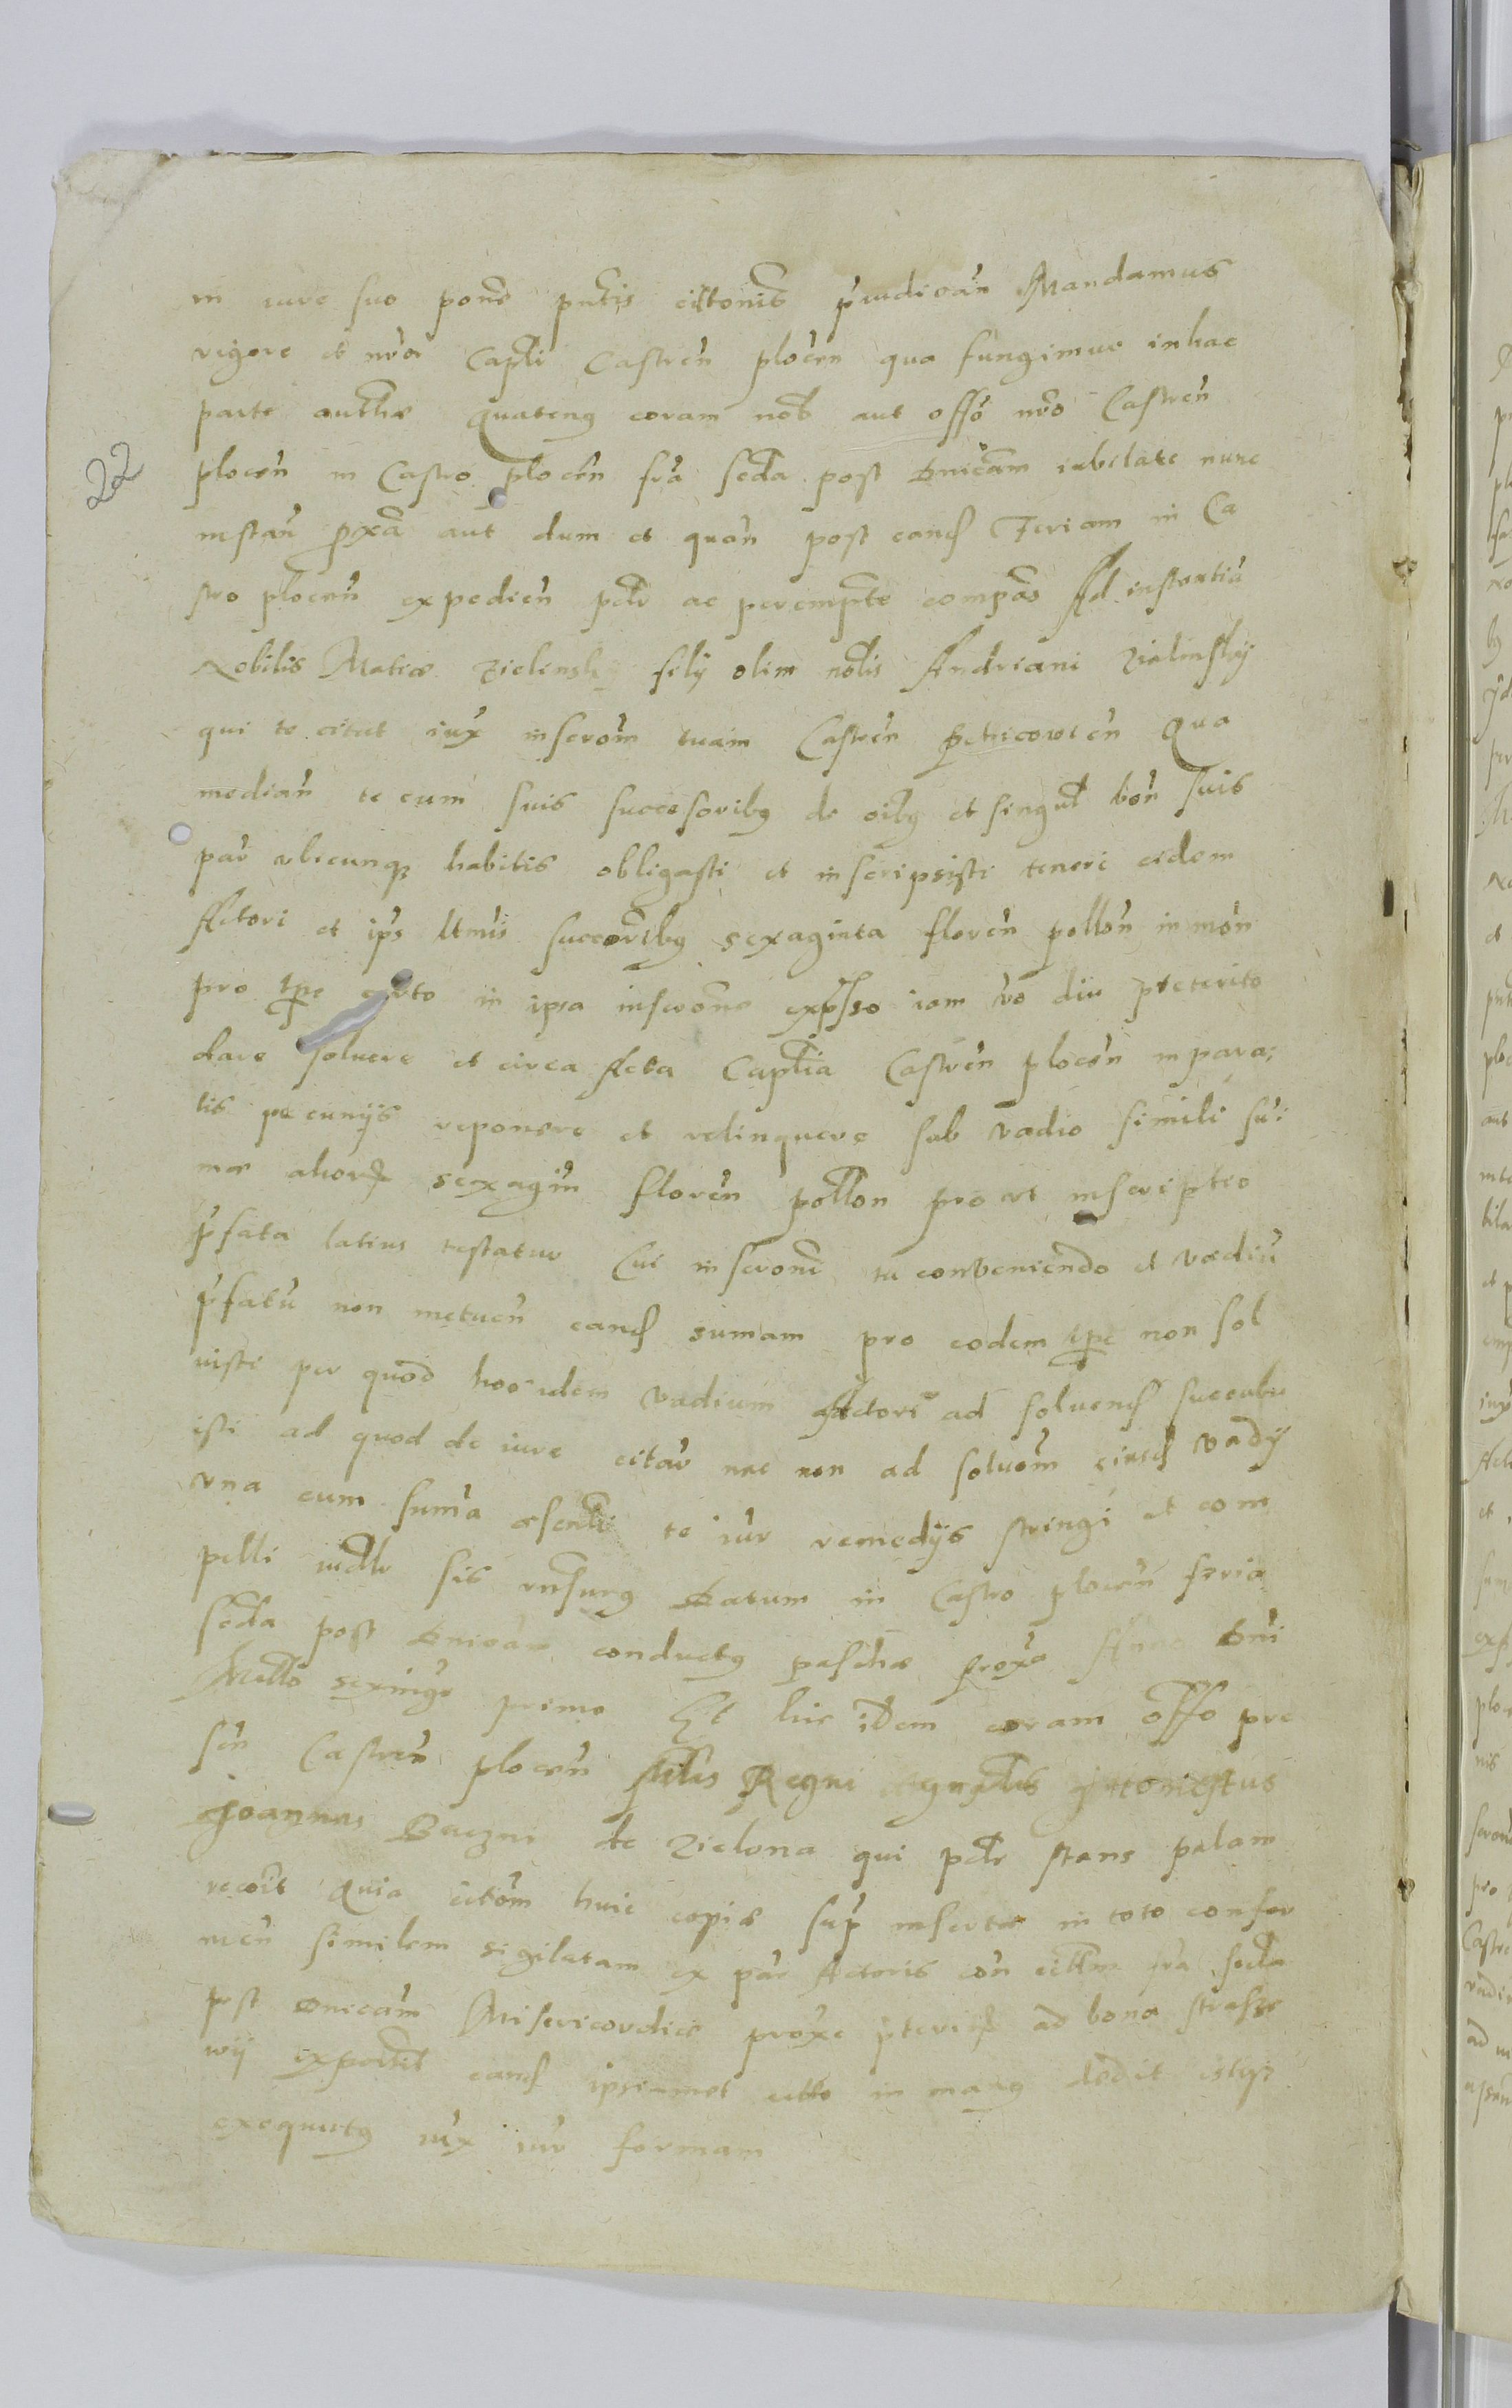 in iure suo pone pntis cittonis pŕiudicań Mandamus
vigore et nŕa Captli Castreń ploceń qua fungimur in hac
parte autthe quateng coram nob aut offo nro Castreń
22
ploceń in Castro ploceń fra scda post dnicam iubilate nunc
instań pxa aut dum et quań post eand Feriam in Ca
stro ploceń expedień pctr ac perempte compas Ad instantiã
Nobilis Matiæ Zielensk filÿ olim noblis Andriani Zialinskÿ
qui te citat iux inscrom tuam Castreń Petricovień Qua
mediań te cum suis successoribg de oibg et singul boń suis
par vbicunqz habitis obligasti et inscripsisti teneri eidem
Actori et ips ltmis succoribg sexaginta floreń polloń in moń
pro tpe certo in ipsa inscrone expsso iam vo diu pteterito
dare soluere et circa Acta Captlia Castreń ploceń in para:
tis pecunÿs reponere et relinquere sub vadio simili su:
mæ alior sexagiń floreń polloń pro ut inscriptio
pŕfata latius testatur Cui inscroni tu conveniendo et vadiũ
pŕfatũ non metueń eand sumam pro eodem tpe non sol
uisti per quod hoc idem vadium Actori ad soluend succubu
isti ad quod de iure citar nec non ad soluom eiusd vadÿ
vna cum suma te iur remedÿs stringi et com
pelli iudlr sis rnsurg Datum in Castro ploceń feria
scda post dnicam conductg paschæ proxa Anno dni
Millo sexingo primo Et hic idem coram offo pre
seń Castreń ploceń Regni
Joannes de Zielona qui pctr stans palam
recoit Quia citom huic copiæ sup insertæ in toto confor
meń similem sigilatam ex par Actoris coń cittm fra scda
post dnicam Misericordiæ proxe pterit ad bona
wÿ eand ipsiamet citto in mang dedit
exequutg iux iur formam